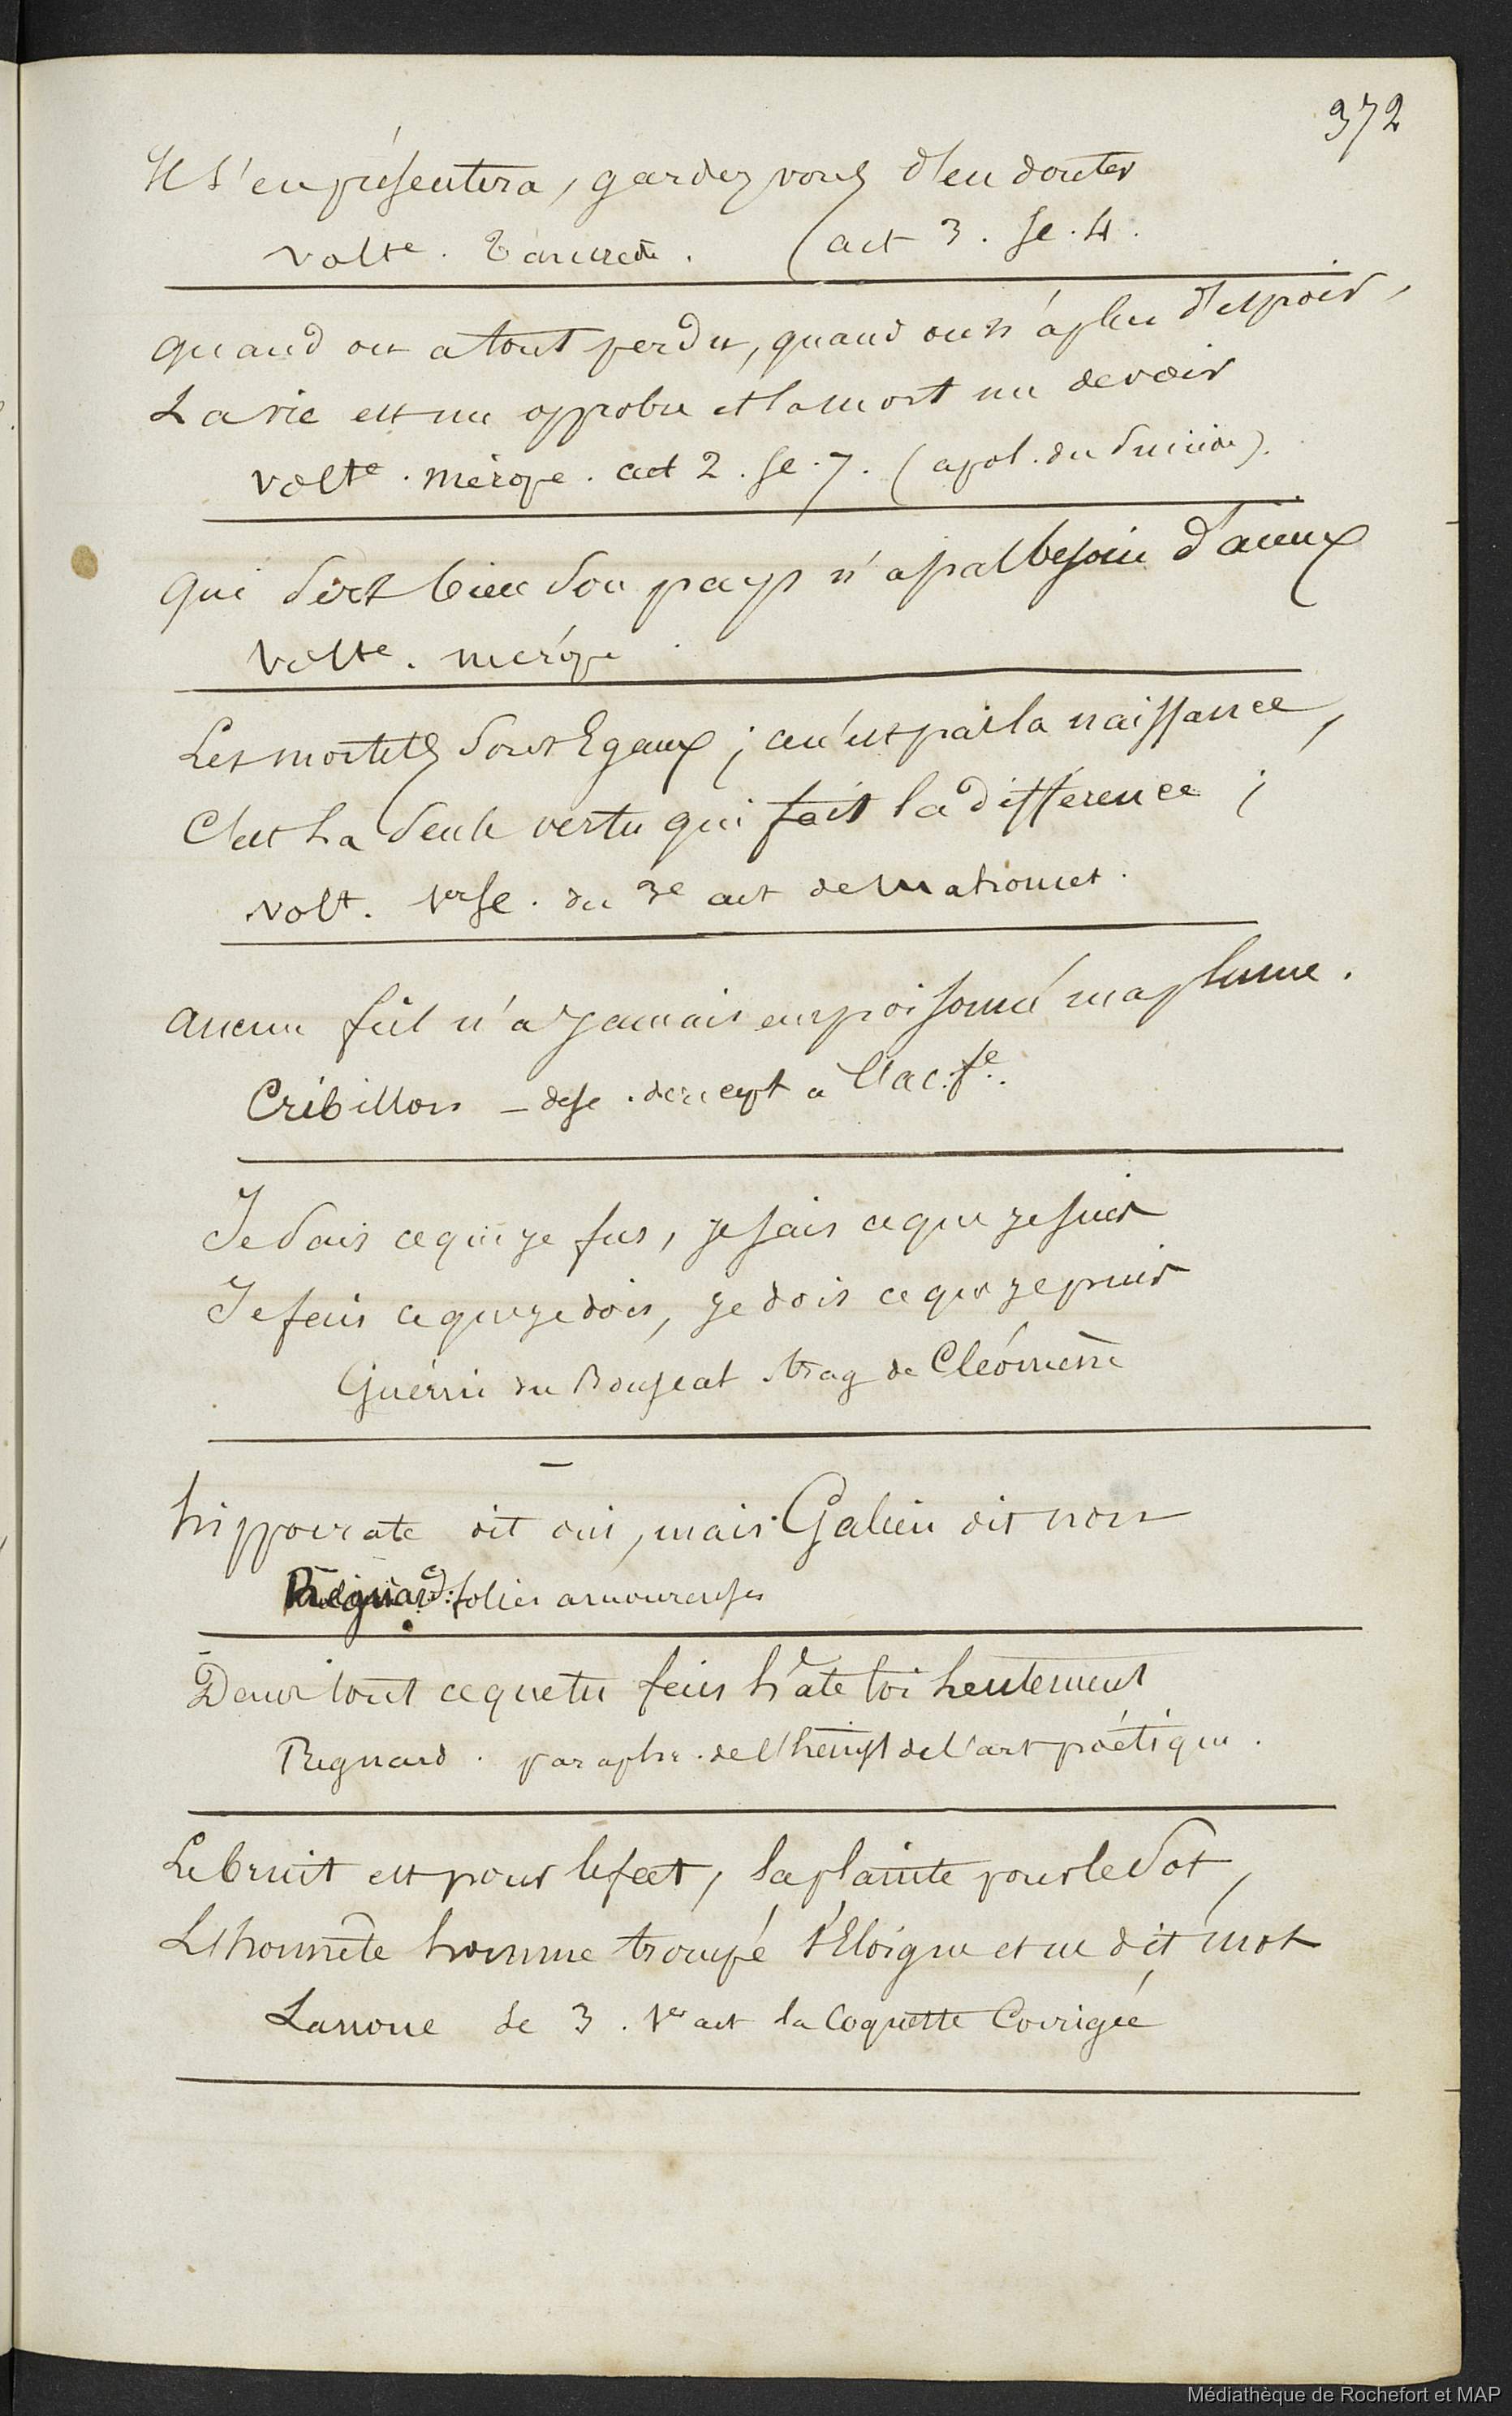 372
Il s'en présentera, gardez vous d'en douter
Volte. Tancrede. (act 3. sc. 4.
quand on a tout perdu, quand on n'a plus d'espoir,
La vie est un opprobre et la mort un devoir
Volte. Mérope. act 2. sc. 7. (apol. du suicide).
qui sert bien son pays n'a pas besoin d'aieux
Volte. mérope
Les mortels sont Egaux ; ce n'est pas la naissance,
C'est la seule vertu qui fait la différence ;
volt. 1re sc. du 3e act de Mahomet.
aucun fiel n'a jamais empoisonné ma plume.
Crébillon - disc. de recept a l'ac. fe.
Je sais ce que je fus, je sais ce que je suis
Je fais ce que je dois, je dois ce que je puis
Guérin du Bouscat trag de Cléomène
hippocrate dit oui, mais Galien dit non
Regnard: folies amoureuses
Dans tout ce que tu fais hate toi lentement
Regnard. paraphr. de l'hémist de l'art poétique.
Le bruit est pour le fat, la plainte pour le sot,
L'honnête homme trompé s'Eloigne et ne dit mot
Lanoue sc 3. 1er act la Coquette Corrigée
Médiathèque de Rochefort et MAP